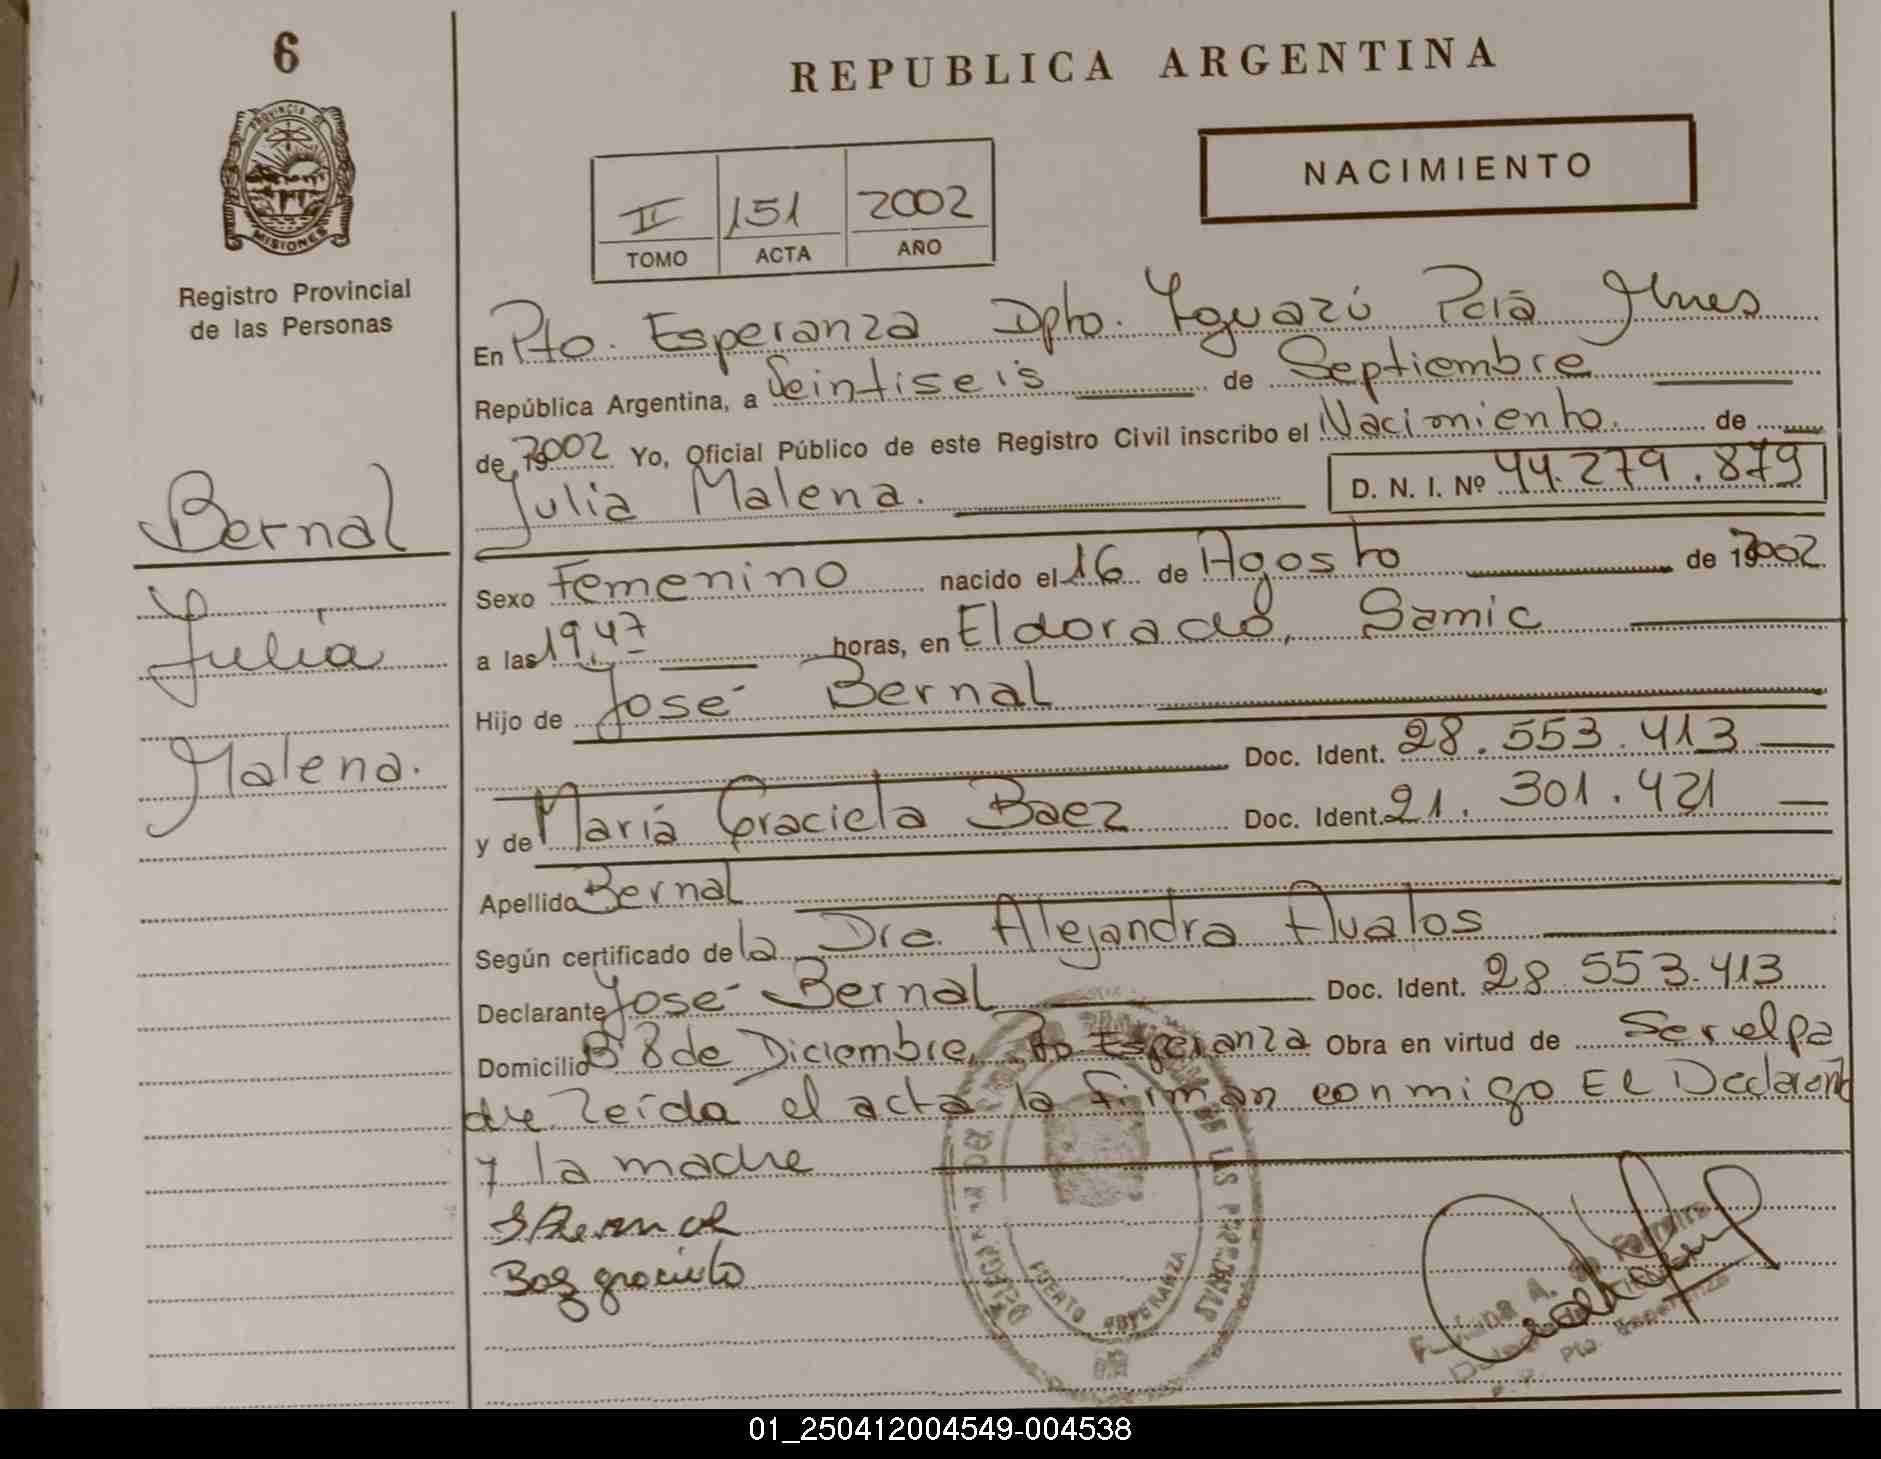 6
REPUBLICA ARGENTINA
PROVINCIA DE
MISIONES
Registro Provincial
de las Personas
NACIMIENTO
II 151 2002
TOMO ACTA AÑO
En Pto. Esperanza Dpto. Yguazú Pcia Mnes
República Argentina, a Veintiseis de Septiembre
de 2002 Yo, Oficial Público de este Registro Civil inscribo el Nacimiento. de
Julia Malena. D. N. I. Nº 44.279.879
Bernal
Julia
Malena.
Sexo Femenino nacido el 16 de Agosto de 2002
a las 19,47 horas, en Eldorado, Samic
Hijo de José Bernal
Doc. Ident. 28.553.413
y de María Graciela Baez Doc. Ident. 21.301.421
Apellido Bernal
Según certificado de la Dra. Alejandra Avalos
Declarante José Bernal Doc. Ident. 28.553.413
Domicilio Bº 8 de Diciembre, Pto. Esperanza Obra en virtud de Ser el pa
dre Leída el acta la firman conmigo El Declarante
y la madre
JBernal
Baez graciela
DE LAS PERSONAS
PUERTO ESPERANZA
Pto. Esperanza
01_250412004549-004538